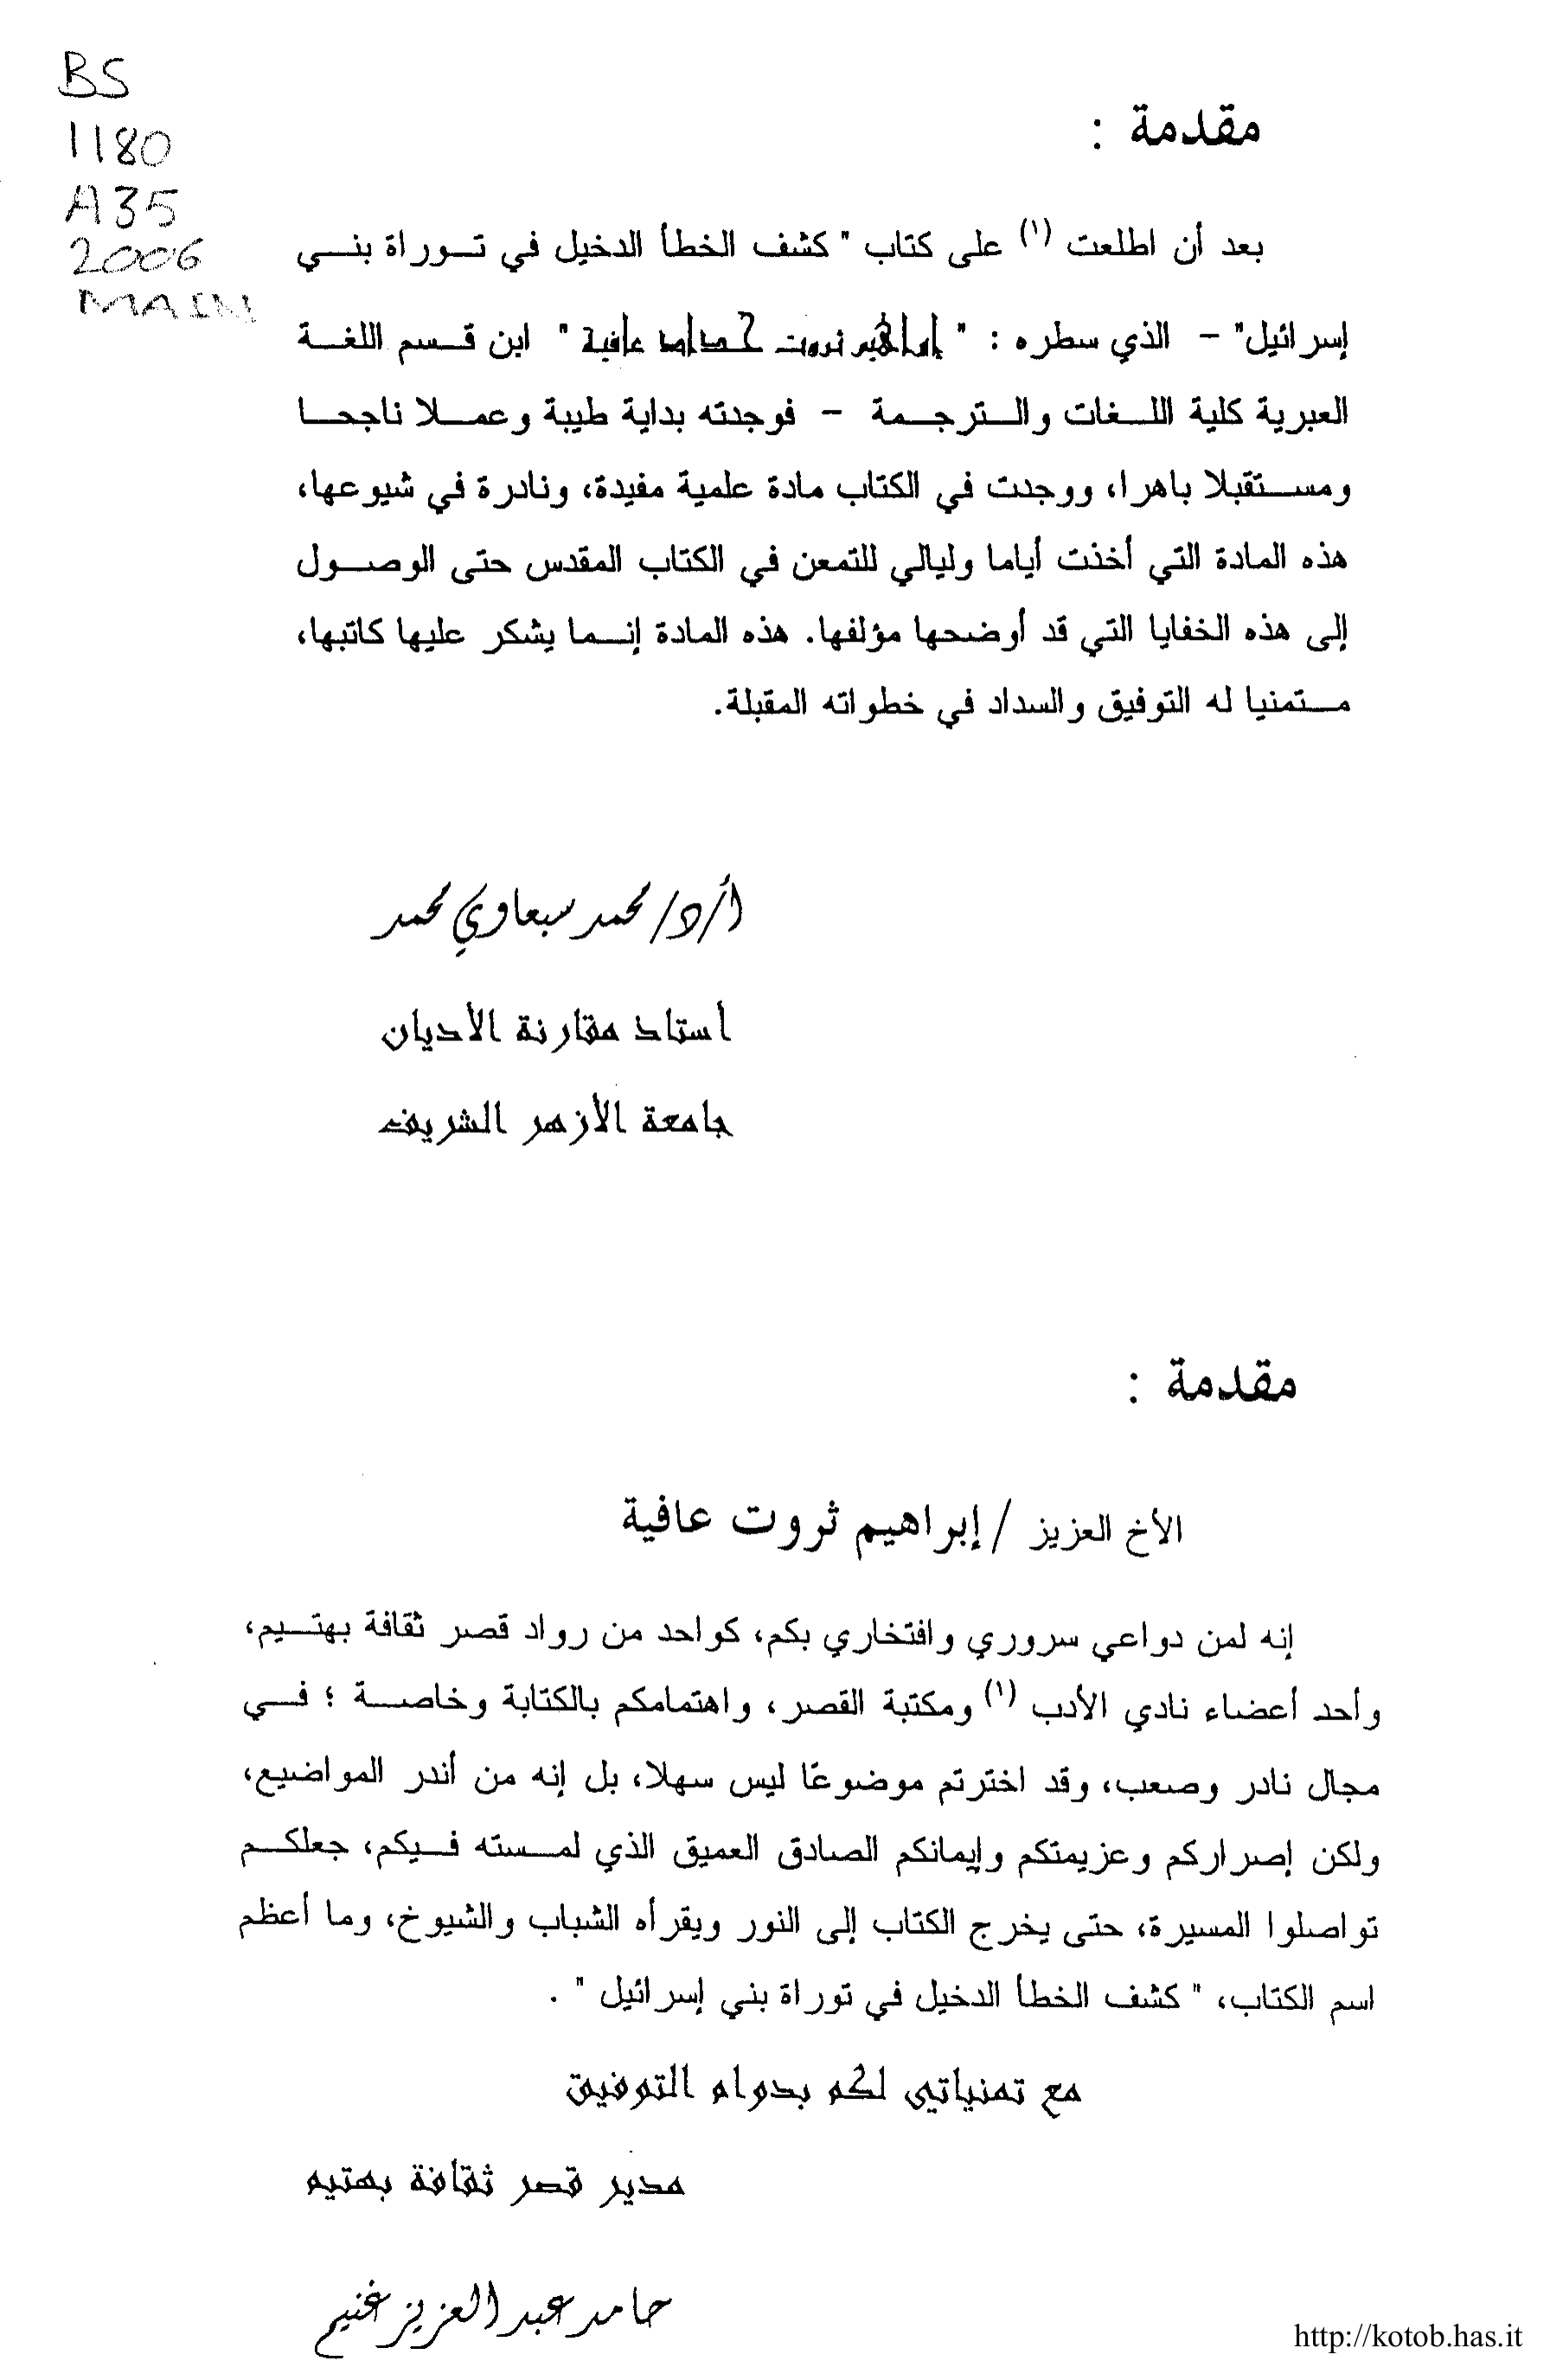 BS
1180
A35
2006
MAIN
مقدمة :
بعد أن اطلعت (١) على كتاب " كشف الخطأ الدخيل في تـوراة بنـي
إسرائيل" - الذي سطره : " إبراهيم ثروت عافية " ابن قـسم اللغـة
العبرية كلية اللـغات والـترجـمة - فوجدته بداية طيبة وعمـلا ناجحـا
ومسـتقبلا باهرا، ووجدت في الكتاب مادة علمية مفيدة، ونادرة في شيوعها،
هذه المادة التي أخذت أياما وليالي للتمعن في الكتاب المقدس حتى الوصـول
إلى هذه الخفايا التي قد أوضحها مؤلفها. هذه المادة إنـما يشكر عليها كاتبها،
مـتمنيا له التوفيق والسداد في خطواته المقبلة.
أ/د/ محمد سبعاوي محمد
أستاذ مقارنة الأديان
جامعة الأزهر الشريف
مقدمة :
الأخ العزيز / إبراهيم ثروت عافية
إنه لمن دواعي سروري وافتخاري بكم، كواحد من رواد قصر ثقافة بهتـيم،
وأحد أعضاء نادي الأدب (١) ومكتبة القصر، واهتمامكم بالكتابة وخاصـة ؛ فـي
مجال نادر وصعب، وقد اخترتم موضوعًا ليس سهلا، بل إنه من أندر المواضيع،
ولكن إصراركم وعزيمتكم وإيمانكم الصادق العميق الذي لمـسته فـيكم، جعلكـم
تواصلوا المسيرة، حتى يخرج الكتاب إلى النور ويقرأه الشباب والشيوخ، وما أعظم
اسم الكتاب، " كشف الخطأ الدخيل في توراة بني إسرائيل " .
مع تمنياتي لكم بدوام التوفيق
مدير قصر ثقافة بهتيم
حامد عبد العزيز غنيم
http://kotob.has.it